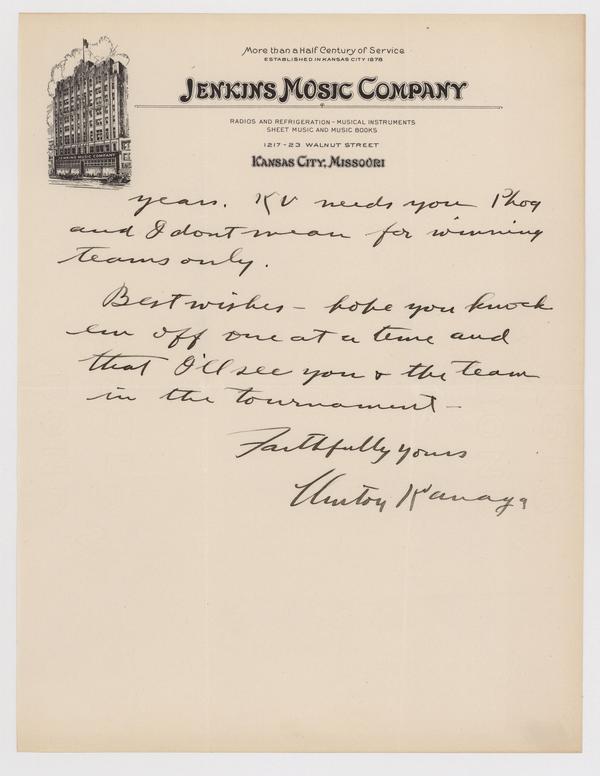 More than a Half Century of Service
ESTABLISHED IN KANSAS CITY 1878
JENKINS MUSIC COMPANY
RADIOS AND REFRIGERATION - MUSICAL INSTRUMENTS
SHEET MUSIC AND MUSIC BOOKS
1217-23 WALNUT STREET
KANSAS CITY, MISSOURI
JENKINS MUSIC COMPANY
years. KU needs you Phog
and I dont mean for winning
teams only.
Best wishes - hope you knock
em off one at a time and
that I'll see you & the team
in the tournament -
Faithfully yours